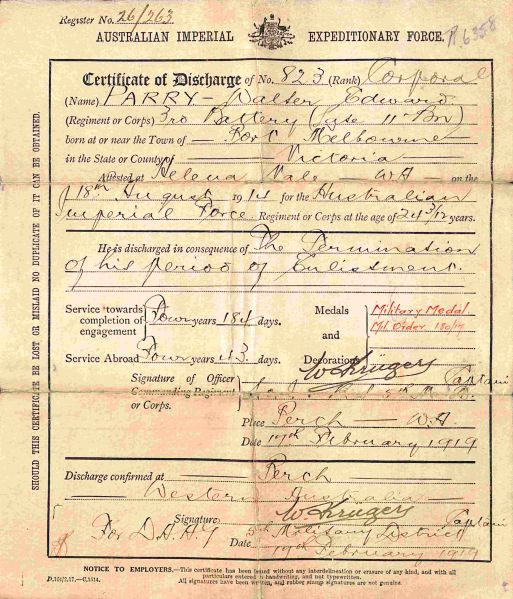 Register No. 26/263
R 6358
AUSTRALIAN IMPERIAL EXPEDITIONARY FORCE.
Certificate of Discharge of No. 823 (Rank) Corporal
(Name) PARRY – Walter Edward.
(Regiment or Corps) 3rd Battery (late 11 Bn)
born at or near the Town of – Port Melbourne –
in the State or County of – Victoria –
Attested at Helena Vale – WA – on the
18th August 1914 for the Australian
Imperial Force Regiment or Corps at the age of 24 3/12 years.
He is discharged in consequence of The Termination
of his period of Enlistment.
Service towards completion of engagement } Four years 184 days.
Medals and Decorations
Military Medal
Mil. Order 180/17
Service Abroad Four years 43 days.
Signature of Officer Commanding Regiment or Corps.
W Krüger
Captain
Place Perth – WA
Date 19th February 1919
Discharge confirmed at – Perth
– Western Australia –
Signature W Krüger Captain
For D.A.A.G 5th Military District
Date 19th February 1919
NOTICE TO EMPLOYERS.—This certificate has been issued without any interdelineation or erasure of any kind, and with all
particulars entered in handwriting, and not typewritten.
All signatures have been written, and rubber stamp signatures are not genuine.
SHOULD THIS CERTIFICATE BE LOST OR MISLAID NO DUPLICATE OF IT CAN BE OBTAINED.